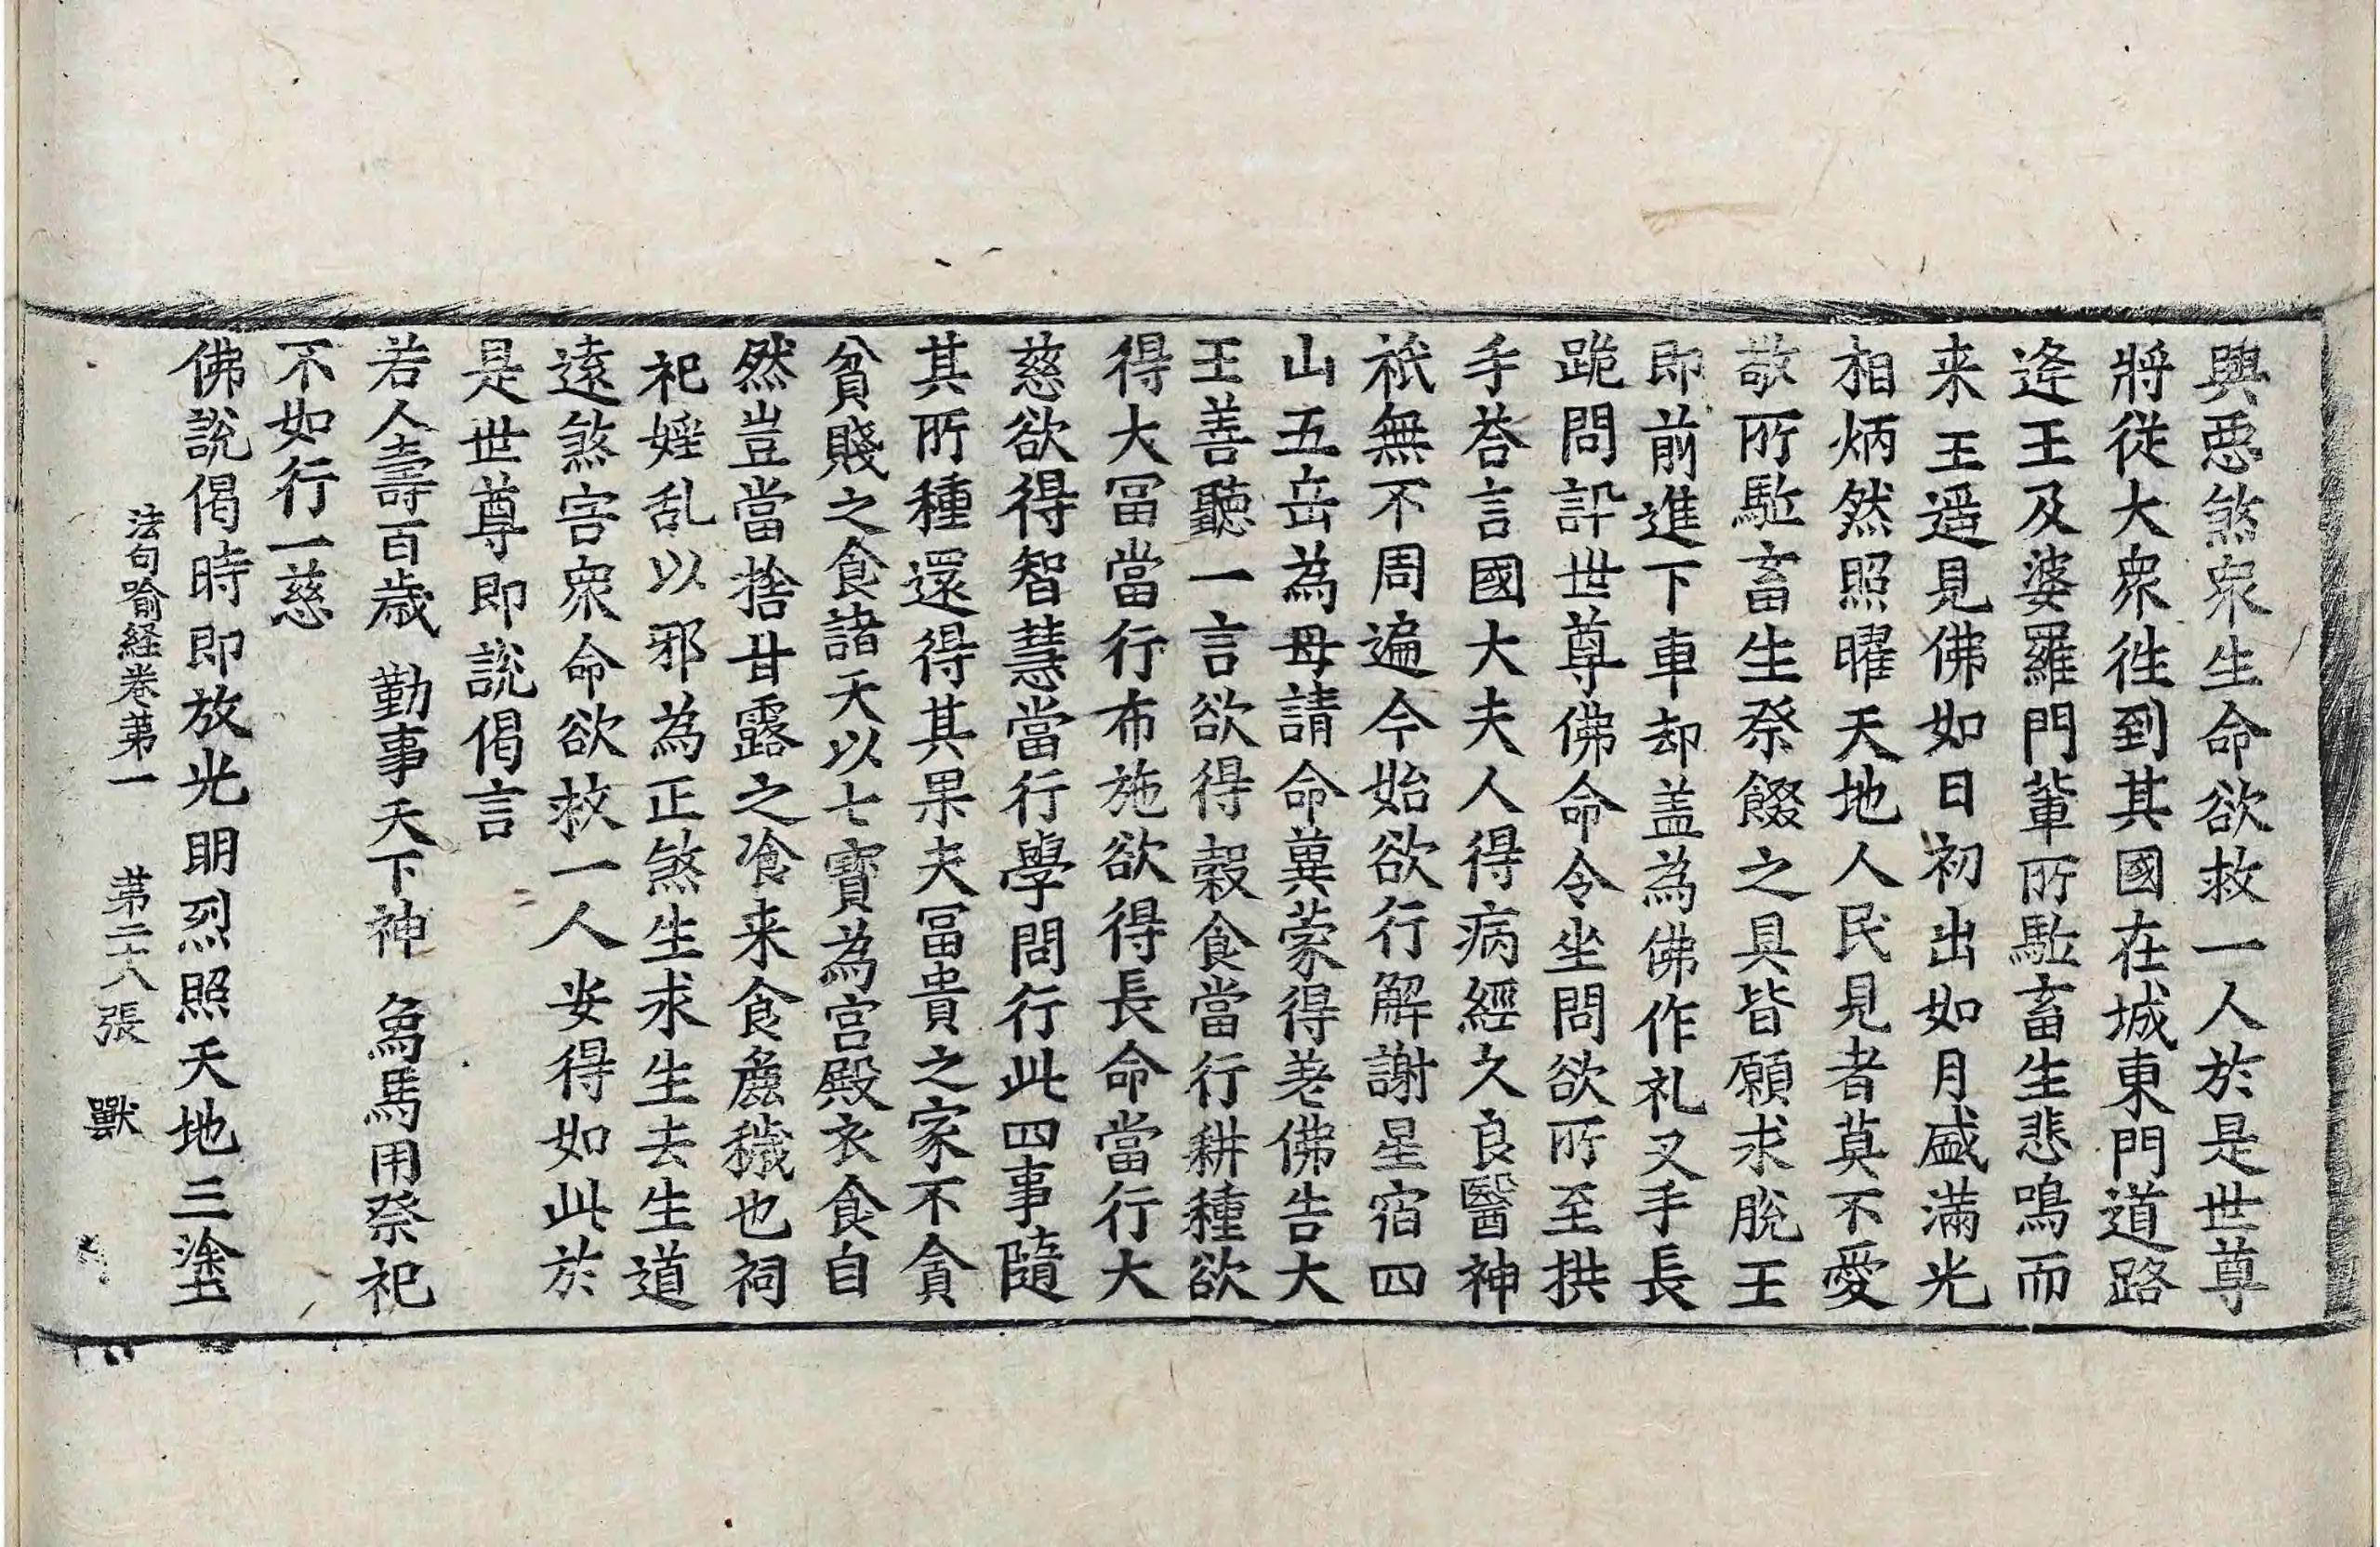 興惡煞衆生命欲救一人於是世尊
將從大衆徃到其國在城東門道路
逄王及婆羅門輩所駈畜生悲鳴而
来王遥見佛如日初出如月盛滿光
相炳然照曜天地人民見者莫不愛
敬所駈畜生祭餟之具皆願求脫王
即前進下車却盖為佛作礼叉手長
跪問訊世尊佛命令坐問欲所至拱
手荅言國大夫人得病經久良醫神
祇無不周遍今始欲行解謝星宿四
山五岳為母請命冀蒙得差佛告大
王善聽一言欲得穀食當行耕種欲
得大冨當行布施欲得長命當行大
慈欲得智慧當行學問行此四事隨
其所種還得其果夫冨貴之家不貪
貧賤之食諸天以七寳為宫殿衣食自
然豈當捨甘露之飡来食麁穢也祠
祀婬乱以邪為正煞生求生去生道
遠煞害衆命欲救一人安得如此於
是世尊即說偈言
若人壽百歳 勤事天下神 象馬用祭祀
不如行一慈
佛說偈時即放光明烈照天地三塗
法句喻経卷第一 第二十八張 獸